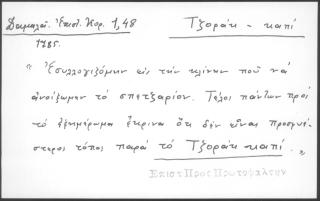 Δαμαλά. Ἐπιστ. Κορ. 1,48 Τζοράκ - καπί
1785.
"Ἐσυλλογιζόμην εἰς τὴν κλίνην ποῦ νὰ
ἀνοίξωμεν τὸ σπετζαρίον. Τέλος πάντων πρὸς
τὸ ἐξημέρωμα ἔκρινα ὅτι δὲν εἶναι προσφυέ-
στερος τόπος παρὰ τὸ Τζοράκ καπί. "
Ἐπιστ Πρὸς Πρωτοψάλτην